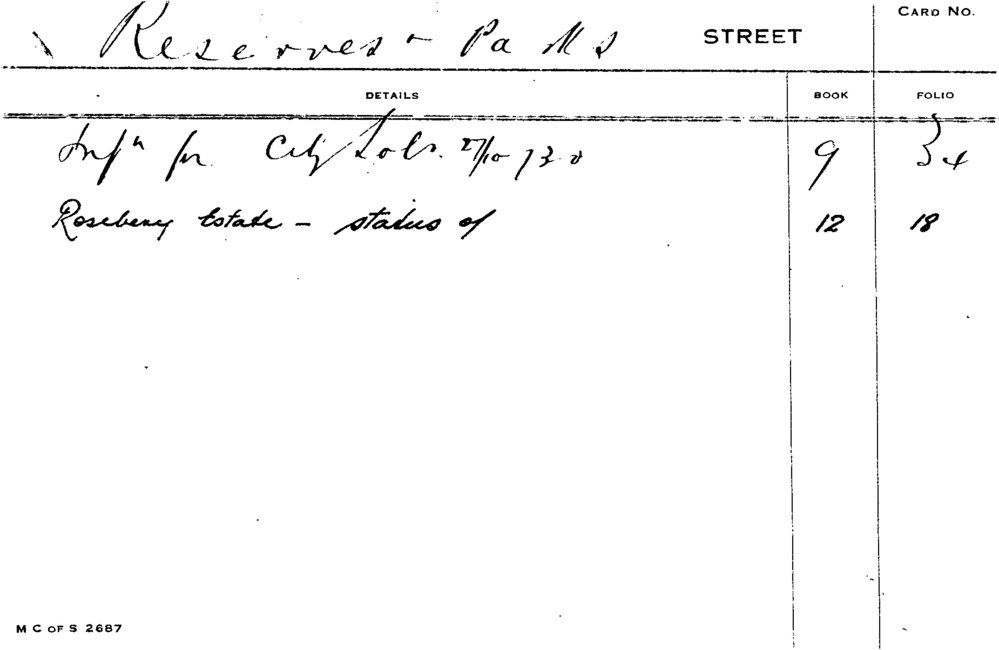 Reserves & Parks STREET CARD NO.
DETAILS BOOK FOLIO
Infn for City Solr. 27/10/30 9 34
Rosebery Estate – status of 12 18
M C OF S 2687